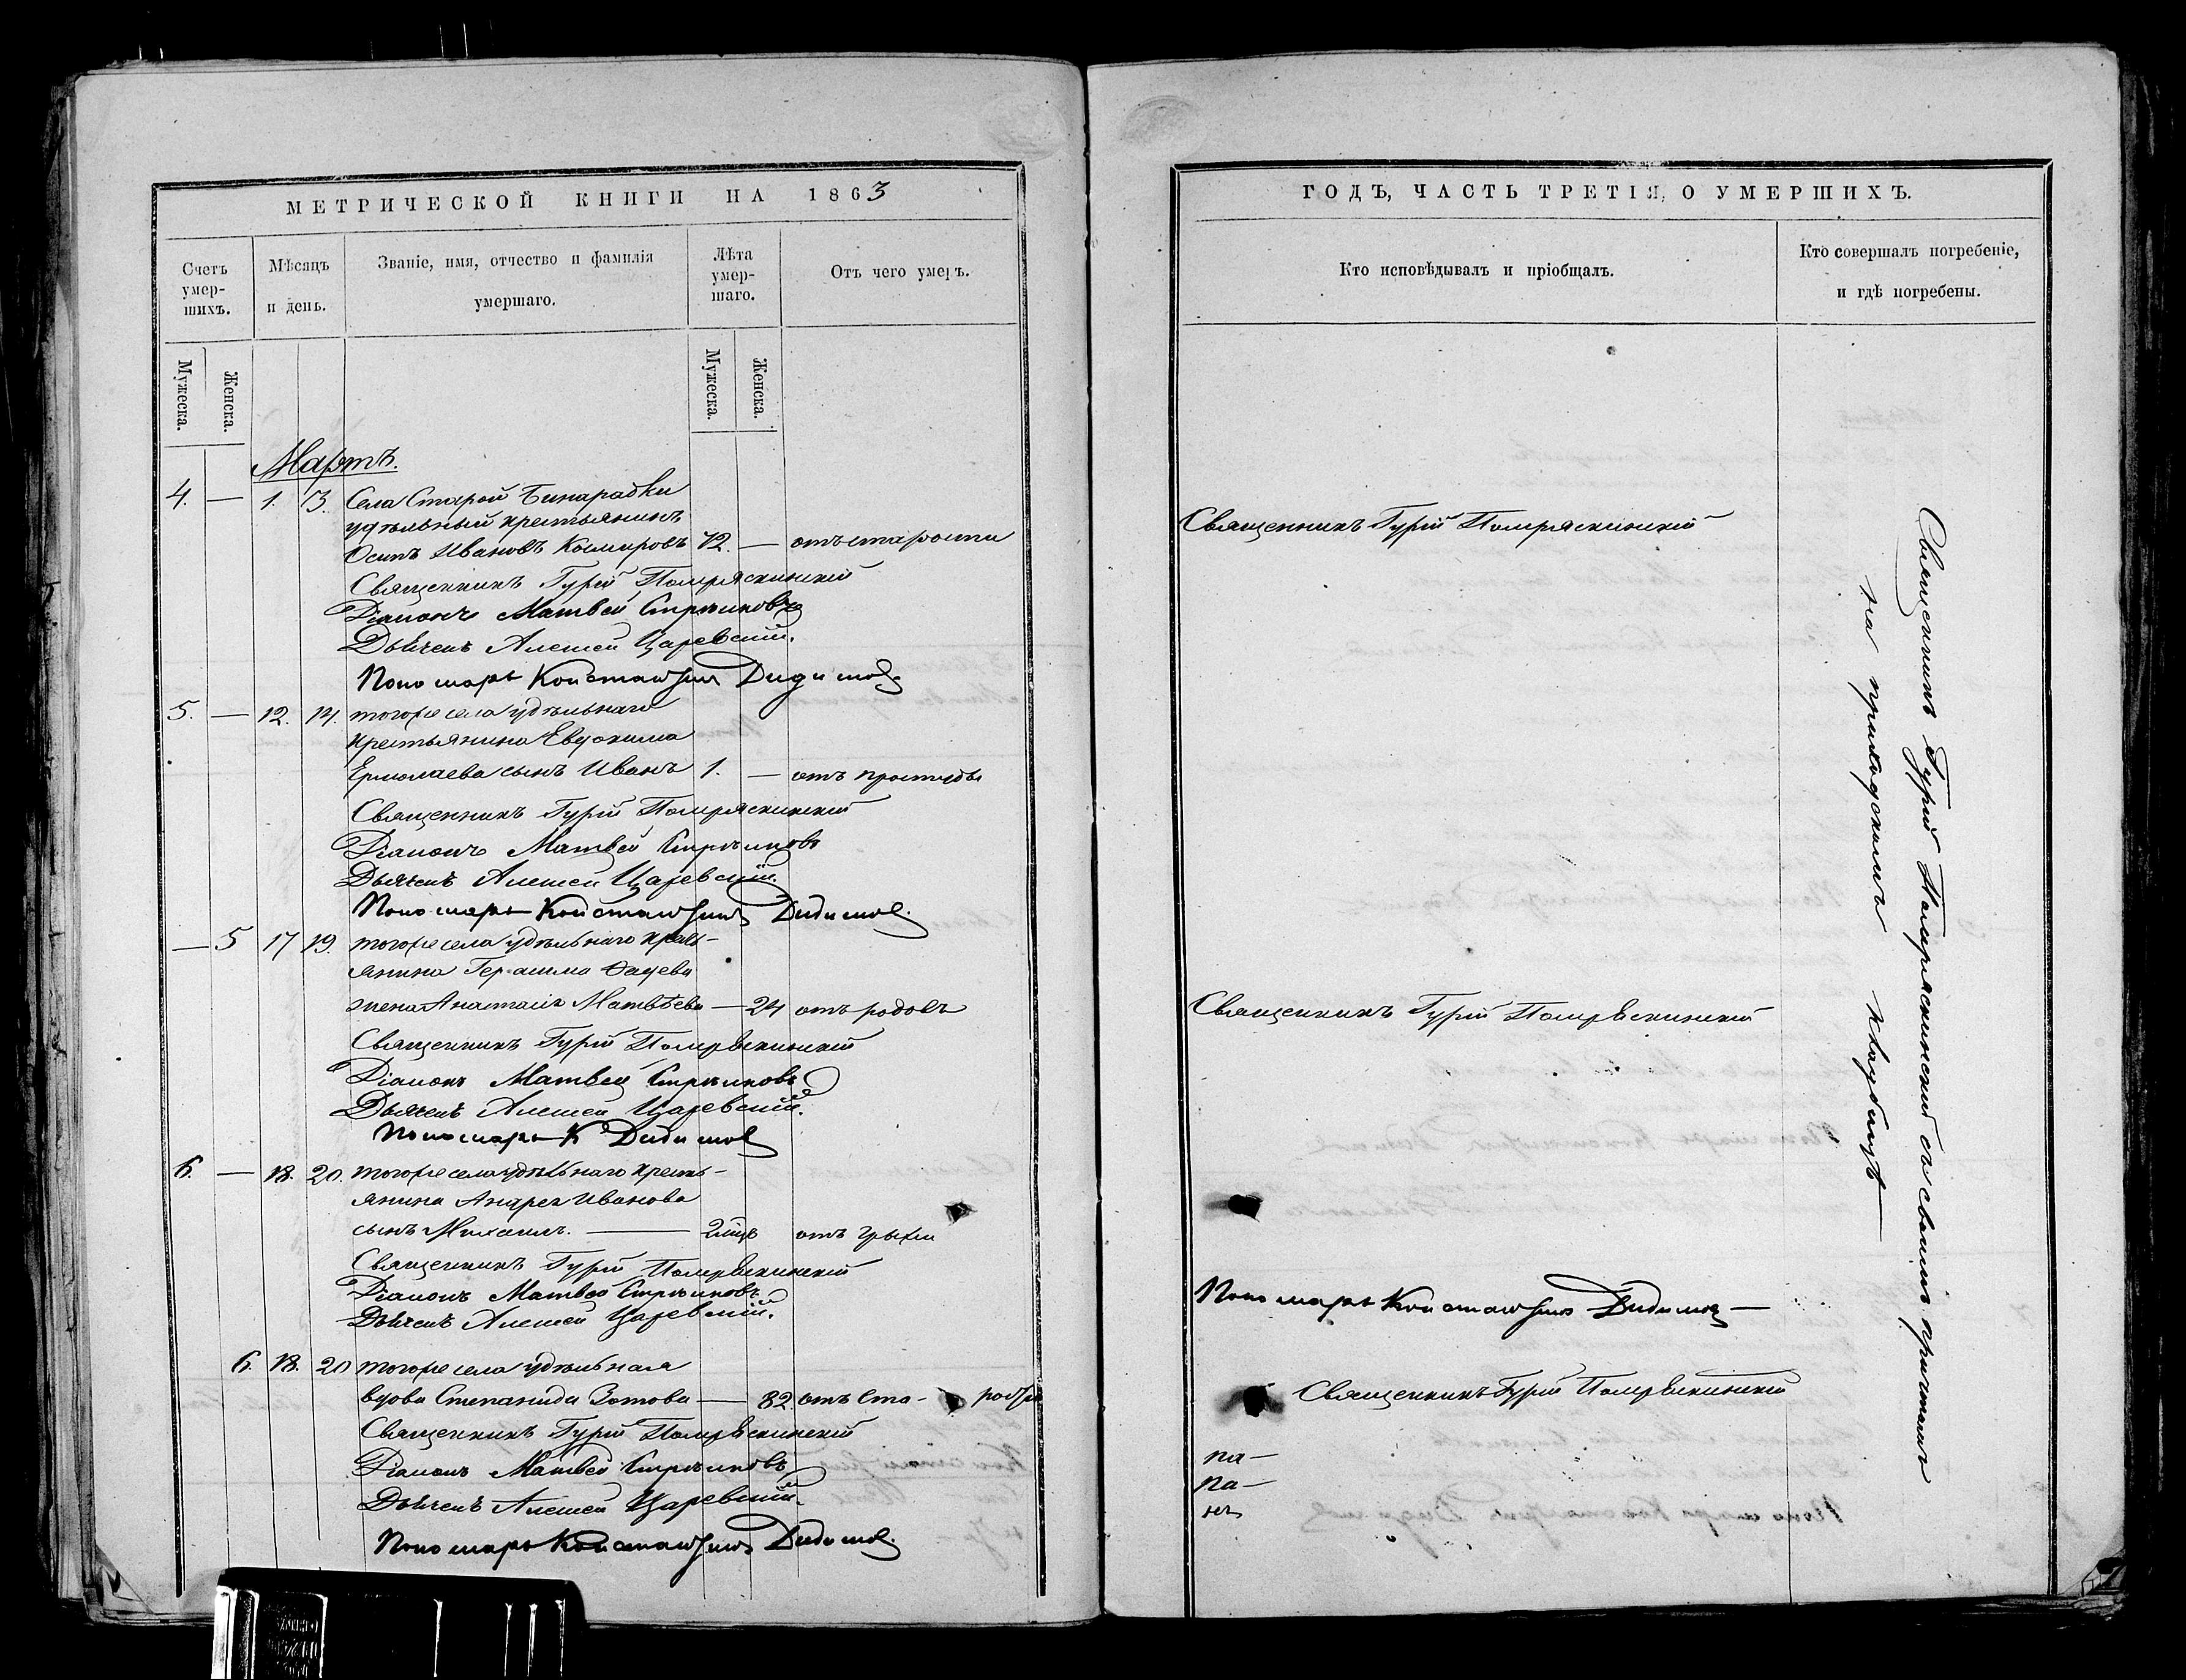 МЕТРИЧЕСКОЙ КНИГИ НА 1863
Счетъ умер-шихъ.
Мѣсяцъ и день.
Званіе, имя, отчество и фамилія умершаго.
Лѣта умер-шаго.
Отъ чего умеръ.
Мужеска.
Женска.
Мужеска.
Женска.
Мартъ.
4. — 1. 3. Села Старой Бинарадки
удѣльный крестьянинъ
Осипъ Ивановъ 72. — отъ старости
Священникъ Гурій Помряскинскій
Діаконъ Матвей Стрѣлковъ
Дьячекъ Алексей Царевскій.
Пономарь Константинъ Дидимов
5. — 12. 14. тогоже села удѣльнаго
крестьянина Евдокима
Ермолаева сынъ Иванъ 1. — отъ простуды
Священникъ Гурій Помряскинскій
Діаконъ Матвей Стрѣлковъ
Дьячекъ Алексей Царевскій.
Пономарь Константинъ Дидимов.
— 5 17 19. тогоже села удѣльнаго кресть-
янина Герасима
жена Анастасія Матвѣева — 24 отъ родовъ
Священникъ Гурій Помряскинскій
Діаконъ Матвей Стрѣлковъ
Дьячекъ Алексей Царевскій.
Пономарь К Дидимов
6. — 18. 20. тогоже села удѣльнаго кресть-
янина Андрея Иванова
сынъ Михаилъ. — 2 мцв отъ грыжи
Священникъ Гурій Помряскинскій
Діаконъ Матвей Стрѣлковъ
Дьячекъ Алексей Царевскій.
6. 18. 20 тогоже села удѣльная
вдова Степанида Зотова — 82 отъ ста- рости
Священникъ Гурій Помряскинскій
Діаконъ Матвей Стрѣлковъ
Дьячекъ Алексей Царевскій.
Пономарь Константинъ Дидимов.
ГОДЪ, ЧАСТЬ ТРЕТІЯ, О УМЕРШИХЪ.
Кто исповѣдывалъ и пріобщалъ.
Кто совершалъ погребеніе,
и гдѣ погребены.
Священникъ Гурій Помряскинскій
Священникъ Гурій Помряскинскій
Пономарь Константинъ Дидимов —
Священникъ Гурій Помряскинскій
на —
Священникъ Гурій Помряскинский съ своимъ причтомъ
на приходскомъ кладбищѣ —